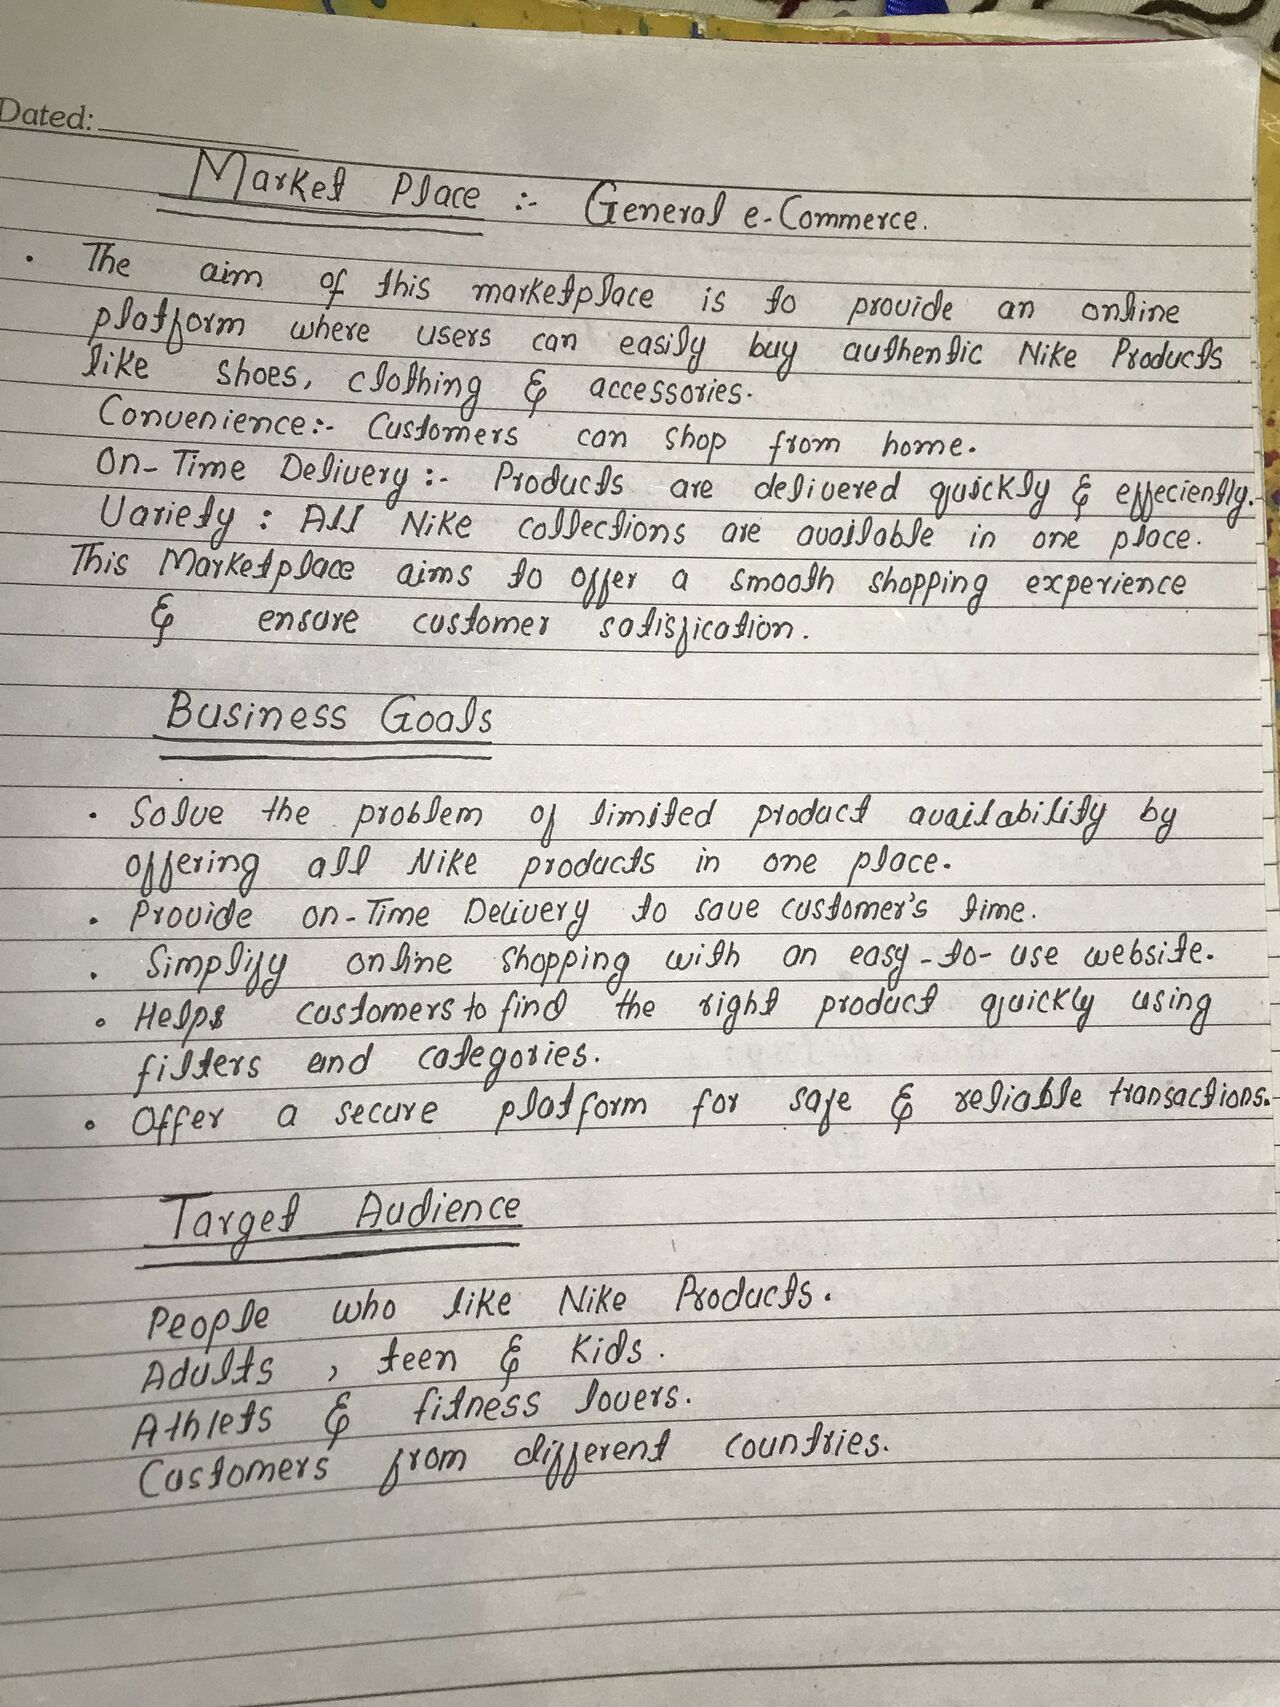 Dated:
Market Place :- General e-Commerce.
• The aim of this marketplace is to provide an online
platform where users can easily buy authentic Nike Products
like shoes, clothing & accessories.
Convenience:- Customers can shop from home.
On-Time Delivery :- Products are delivered quickly & effeciently.
Variety : All Nike collections are available in one place.
This Marketplace aims to offer a smooth shopping experience
& ensure customer satisfication.
Business Goals
• Solve the problem of limited product availability by
offering all Nike products in one place.
• Provide on-Time Delivery to save customer's time.
• Simplify online shopping with an easy-to-use website.
• Helps customers to find the right product quickly using
filters and categories.
• Offer a secure platform for safe & reliable transactions.
Target Audience
People who like Nike Products.
Adults, teen & Kids.
Athlets & fitness lovers.
Customers from different countries.